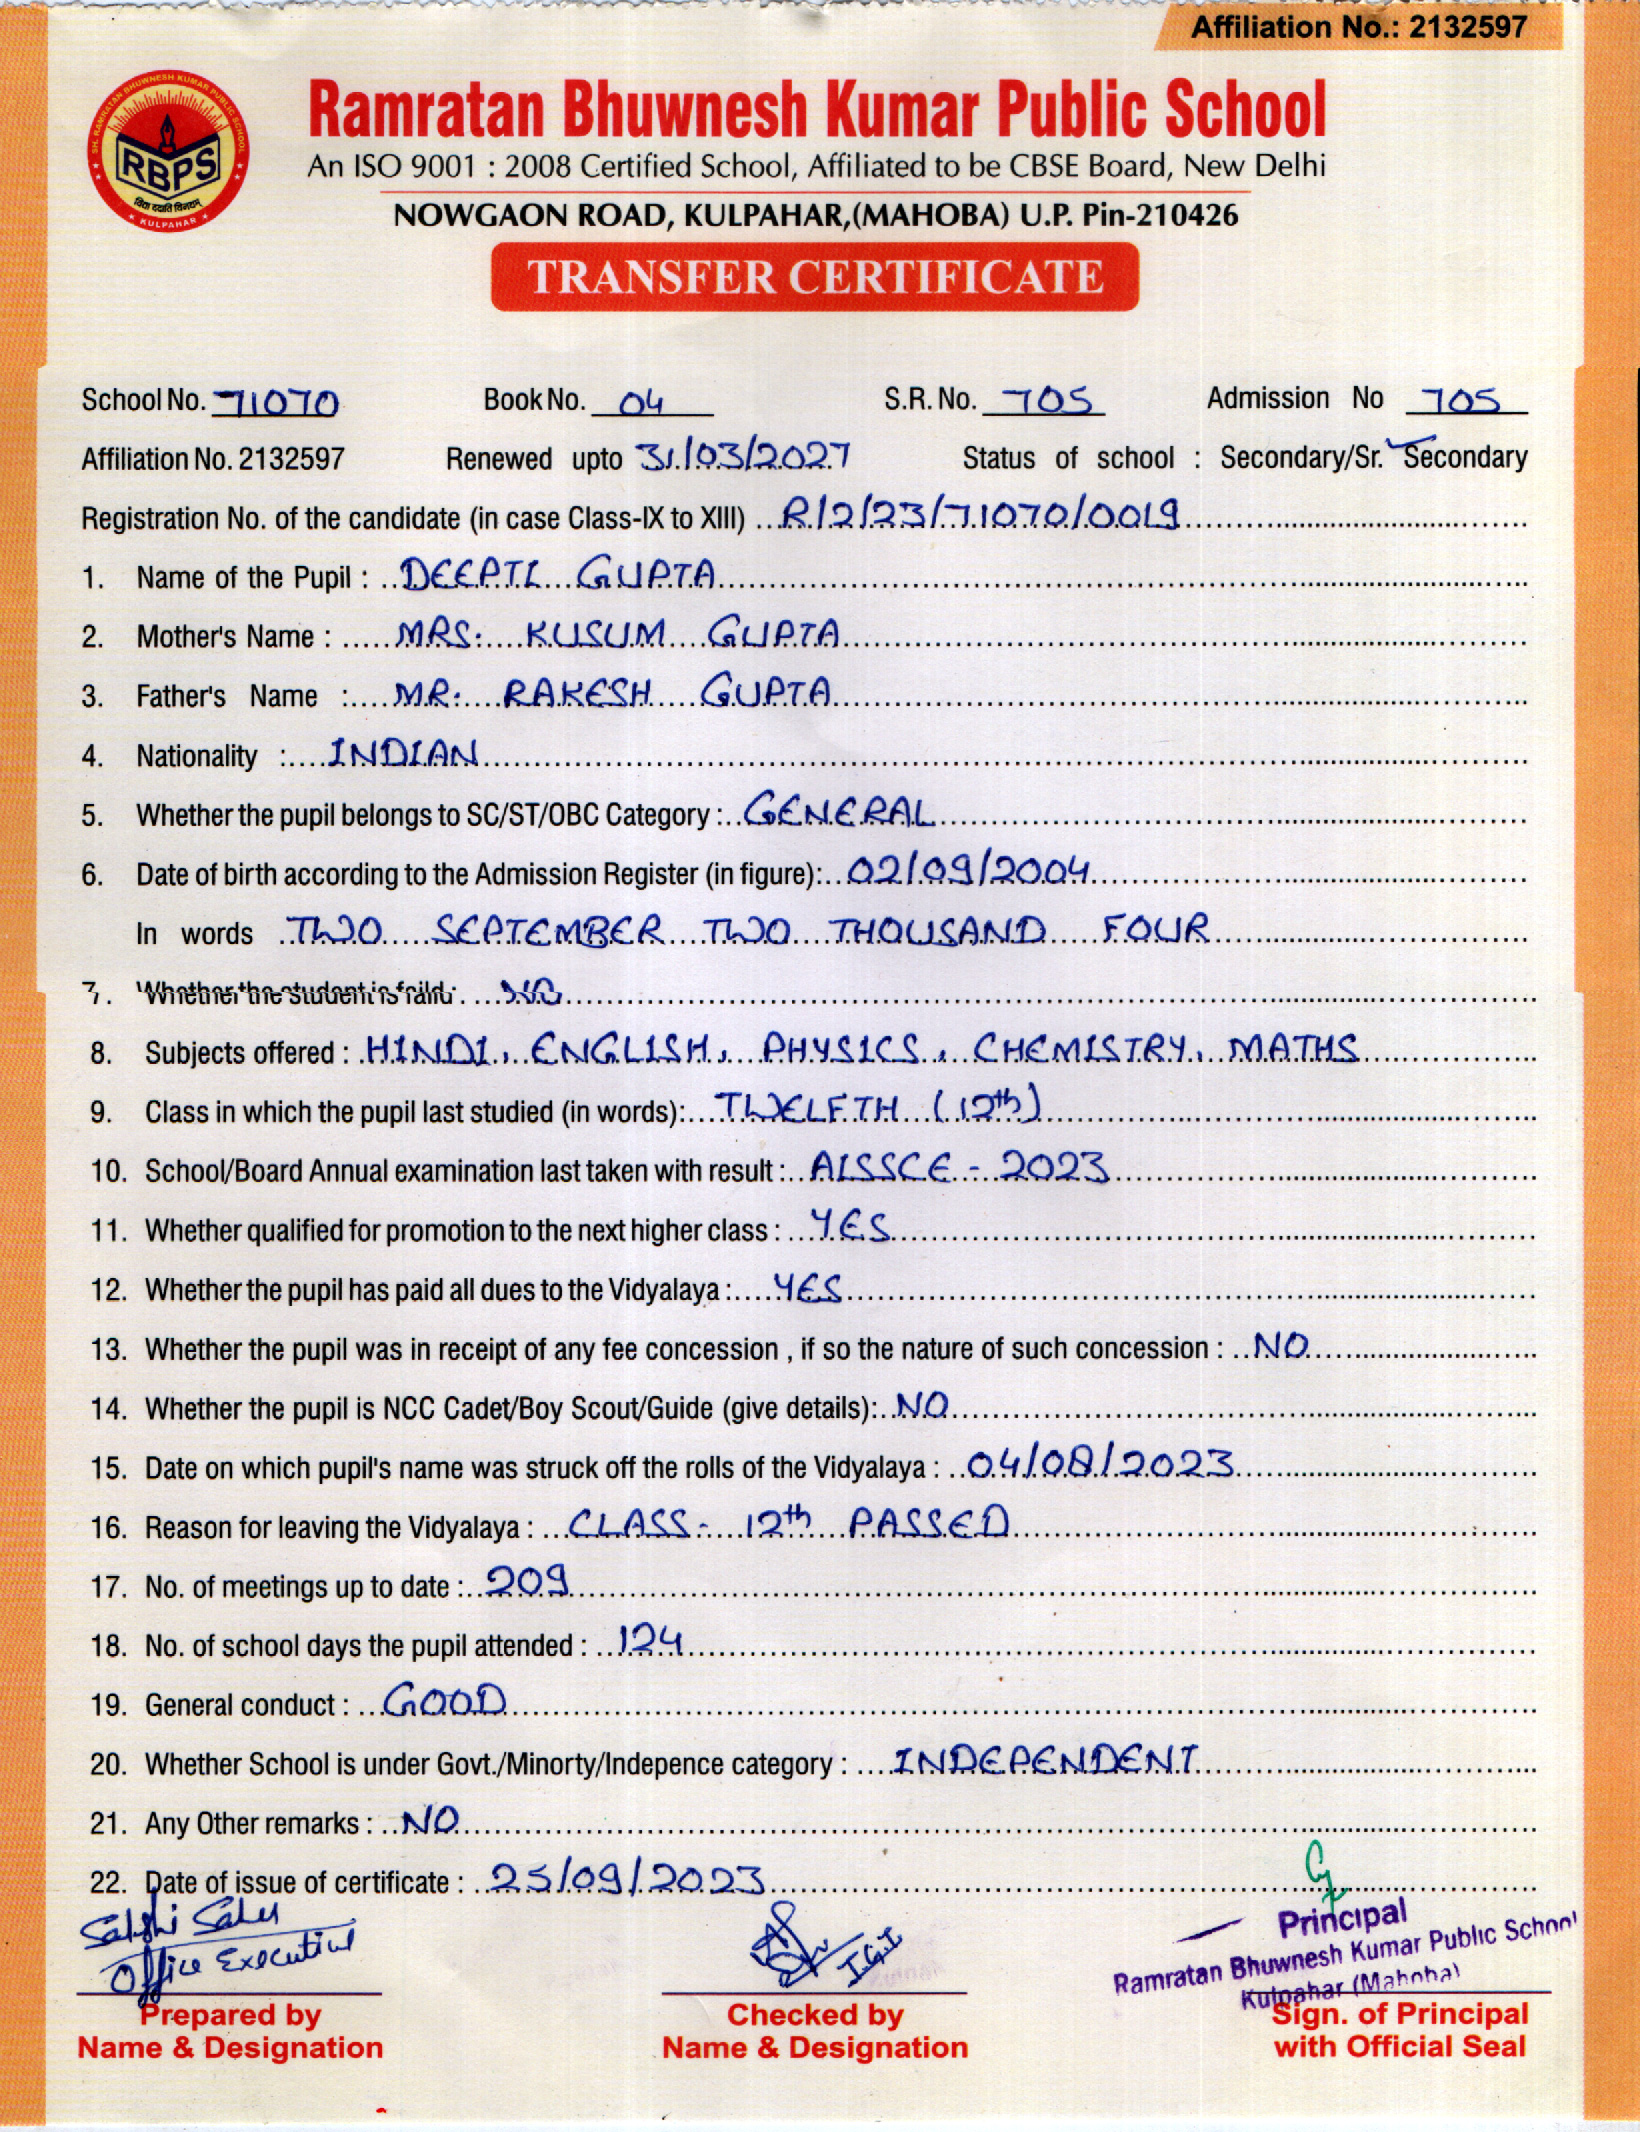 Affiliation No.: 2132597
SH. RAMRATAN BHUWNESH KUMAR PUBLIC SCHOOL
RBPS
विद्या ददाति विनयम्
KULPAHAR
Ramratan Bhuwnesh Kumar Public School
An ISO 9001 : 2008 Certified School, Affiliated to be CBSE Board, New Delhi
NOWGAON ROAD, KULPAHAR,(MAHOBA) U.P. Pin-210426
TRANSFER CERTIFICATE
School No. 71070 Book No. 04 S.R. No. 705 Admission No 705
Affiliation No. 2132597 Renewed upto 31/03/2027 Status of school : Secondary/Sr. Secondary
Registration No. of the candidate (in case Class-IX to XIII) R/2/23/71070/0019
1. Name of the Pupil : DEEPTI GUPTA
2. Mother's Name : MRS. KUSUM GUPTA
3. Father's Name : MR. RAKESH GUPTA
4. Nationality : INDIAN
5. Whether the pupil belongs to SC/ST/OBC Category : GENERAL
6. Date of birth according to the Admission Register (in figure): 02/09/2004
In words TWO SEPTEMBER TWO THOUSAND FOUR
7. Whether the student is faild : NO
8. Subjects offered : HINDI, ENGLISH, PHYSICS, CHEMISTRY, MATHS
9. Class in which the pupil last studied (in words): TWELFTH (12th)
10. School/Board Annual examination last taken with result : AISSCE - 2023
11. Whether qualified for promotion to the next higher class : YES
12. Whether the pupil has paid all dues to the Vidyalaya : YES
13. Whether the pupil was in receipt of any fee concession , if so the nature of such concession : NO
14. Whether the pupil is NCC Cadet/Boy Scout/Guide (give details): NO
15. Date on which pupil's name was struck off the rolls of the Vidyalaya : 04/08/2023
16. Reason for leaving the Vidyalaya : CLASS - 12th PASSED
17. No. of meetings up to date : 209
18. No. of school days the pupil attended : 124
19. General conduct : GOOD
20. Whether School is under Govt./Minorty/Indepence category : INDEPENDENT
21. Any Other remarks : NO
22. Date of issue of certificate : 25/09/2023
Sakshi Sahu
Office Executive
I.G.I
Principal
Ramratan Bhuwnesh Kumar Public School
Kulpahar (Mahoba)
Prepared by Checked by Sign. of Principal
Name & Designation Name & Designation with Official Seal